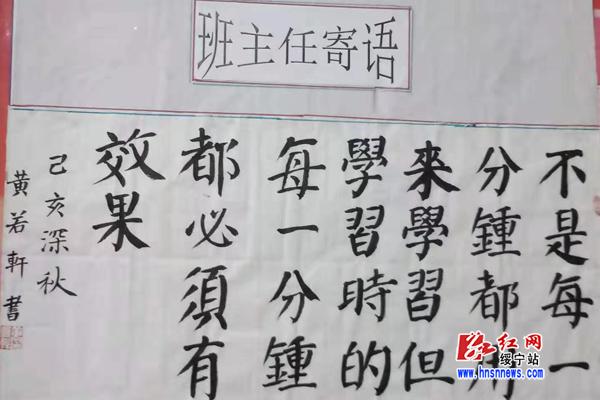 班主任寄语
不是每一
分鍾都用
來學習但
學習時的
每一分鍾
都必須有
效果
己亥深秋
黄若軒書
红网
绥宁站
www.hnsnnews.com